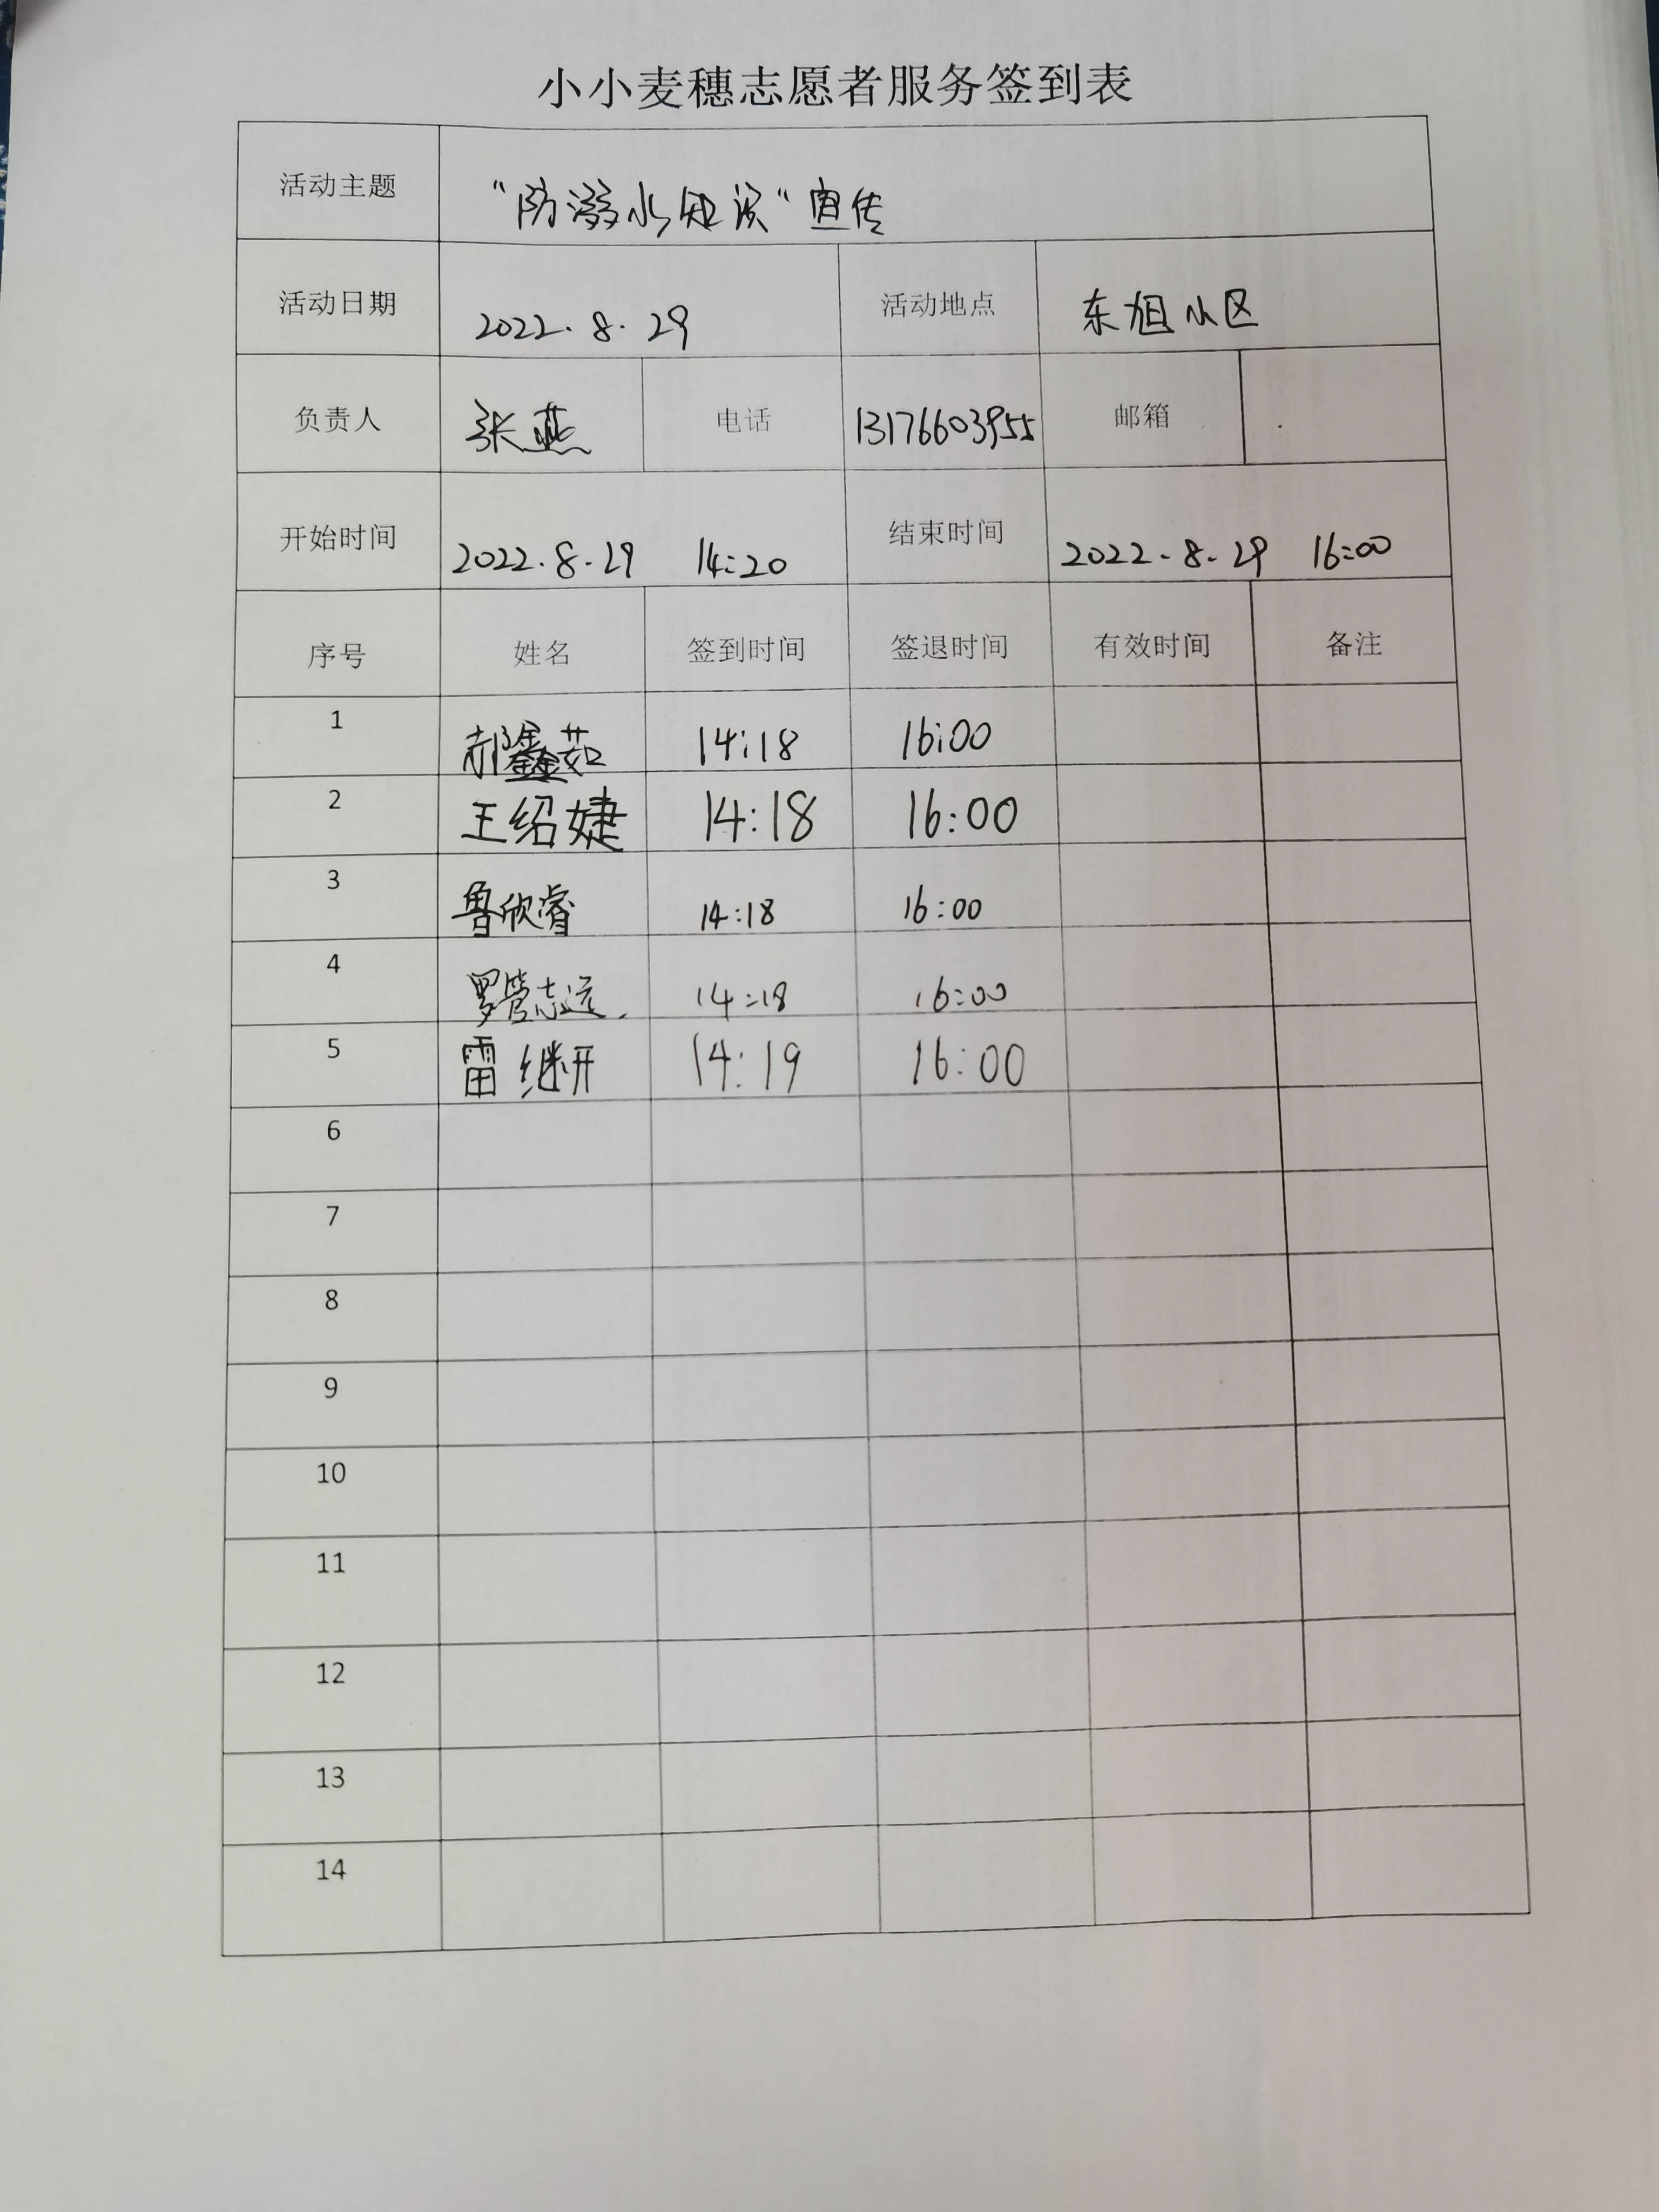 小小麦穗志愿者服务签到表
活动主题 “防溺水知识“宣传
活动日期 2022.8.29 活动地点 东旭小区
负责人 张燕 电话 13176603955 邮箱
开始时间 2022.8.29 14:20 结束时间 2022.8.29 16:00
序号 姓名 签到时间 签退时间 有效时间 备注
1 郝鑫茹 14:18 16:00
2 王绍婕 14:18 16:00
3 鲁欣睿 14:18 16:00
4 罗管志远 14:18 16:00
5 雷继开 14:19 16:00
6
7
8
9
10
11
12
13
14